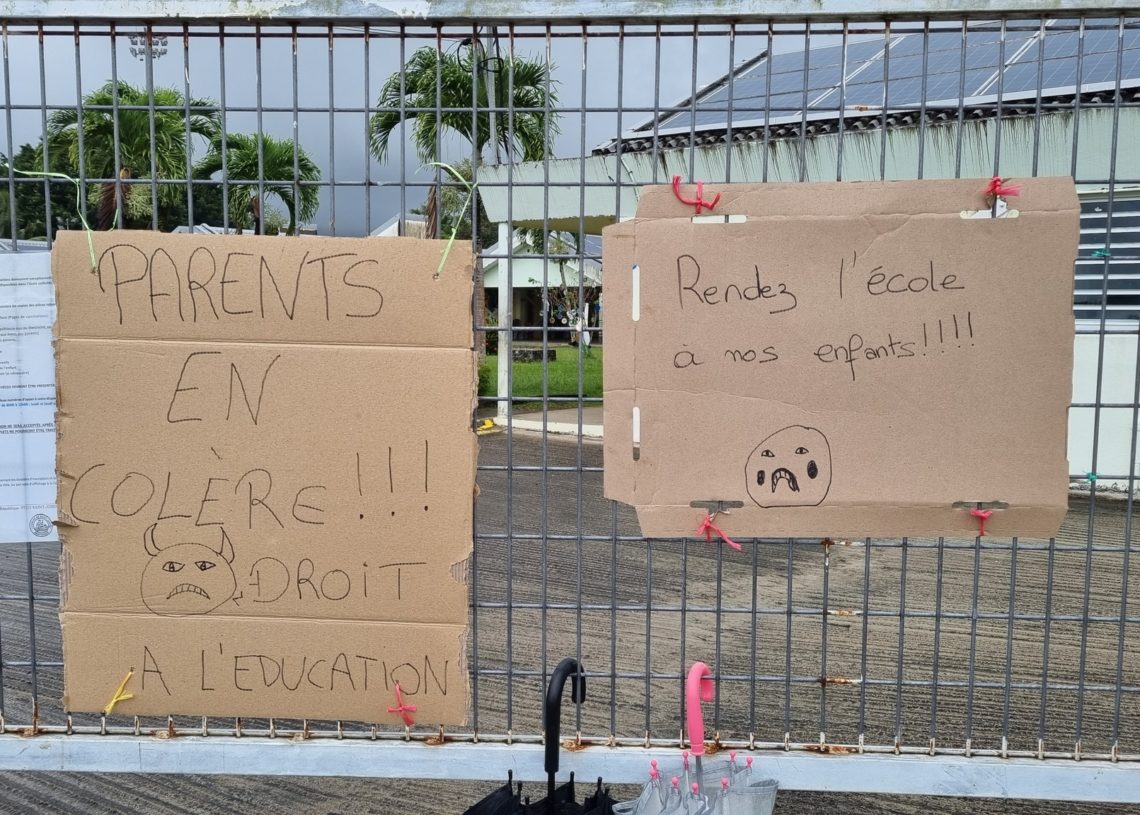 PARENTS
EN
COLÈRE!!!
DROIT
A L'EDUCATION
Rendez l'école
à nos enfants!!!!